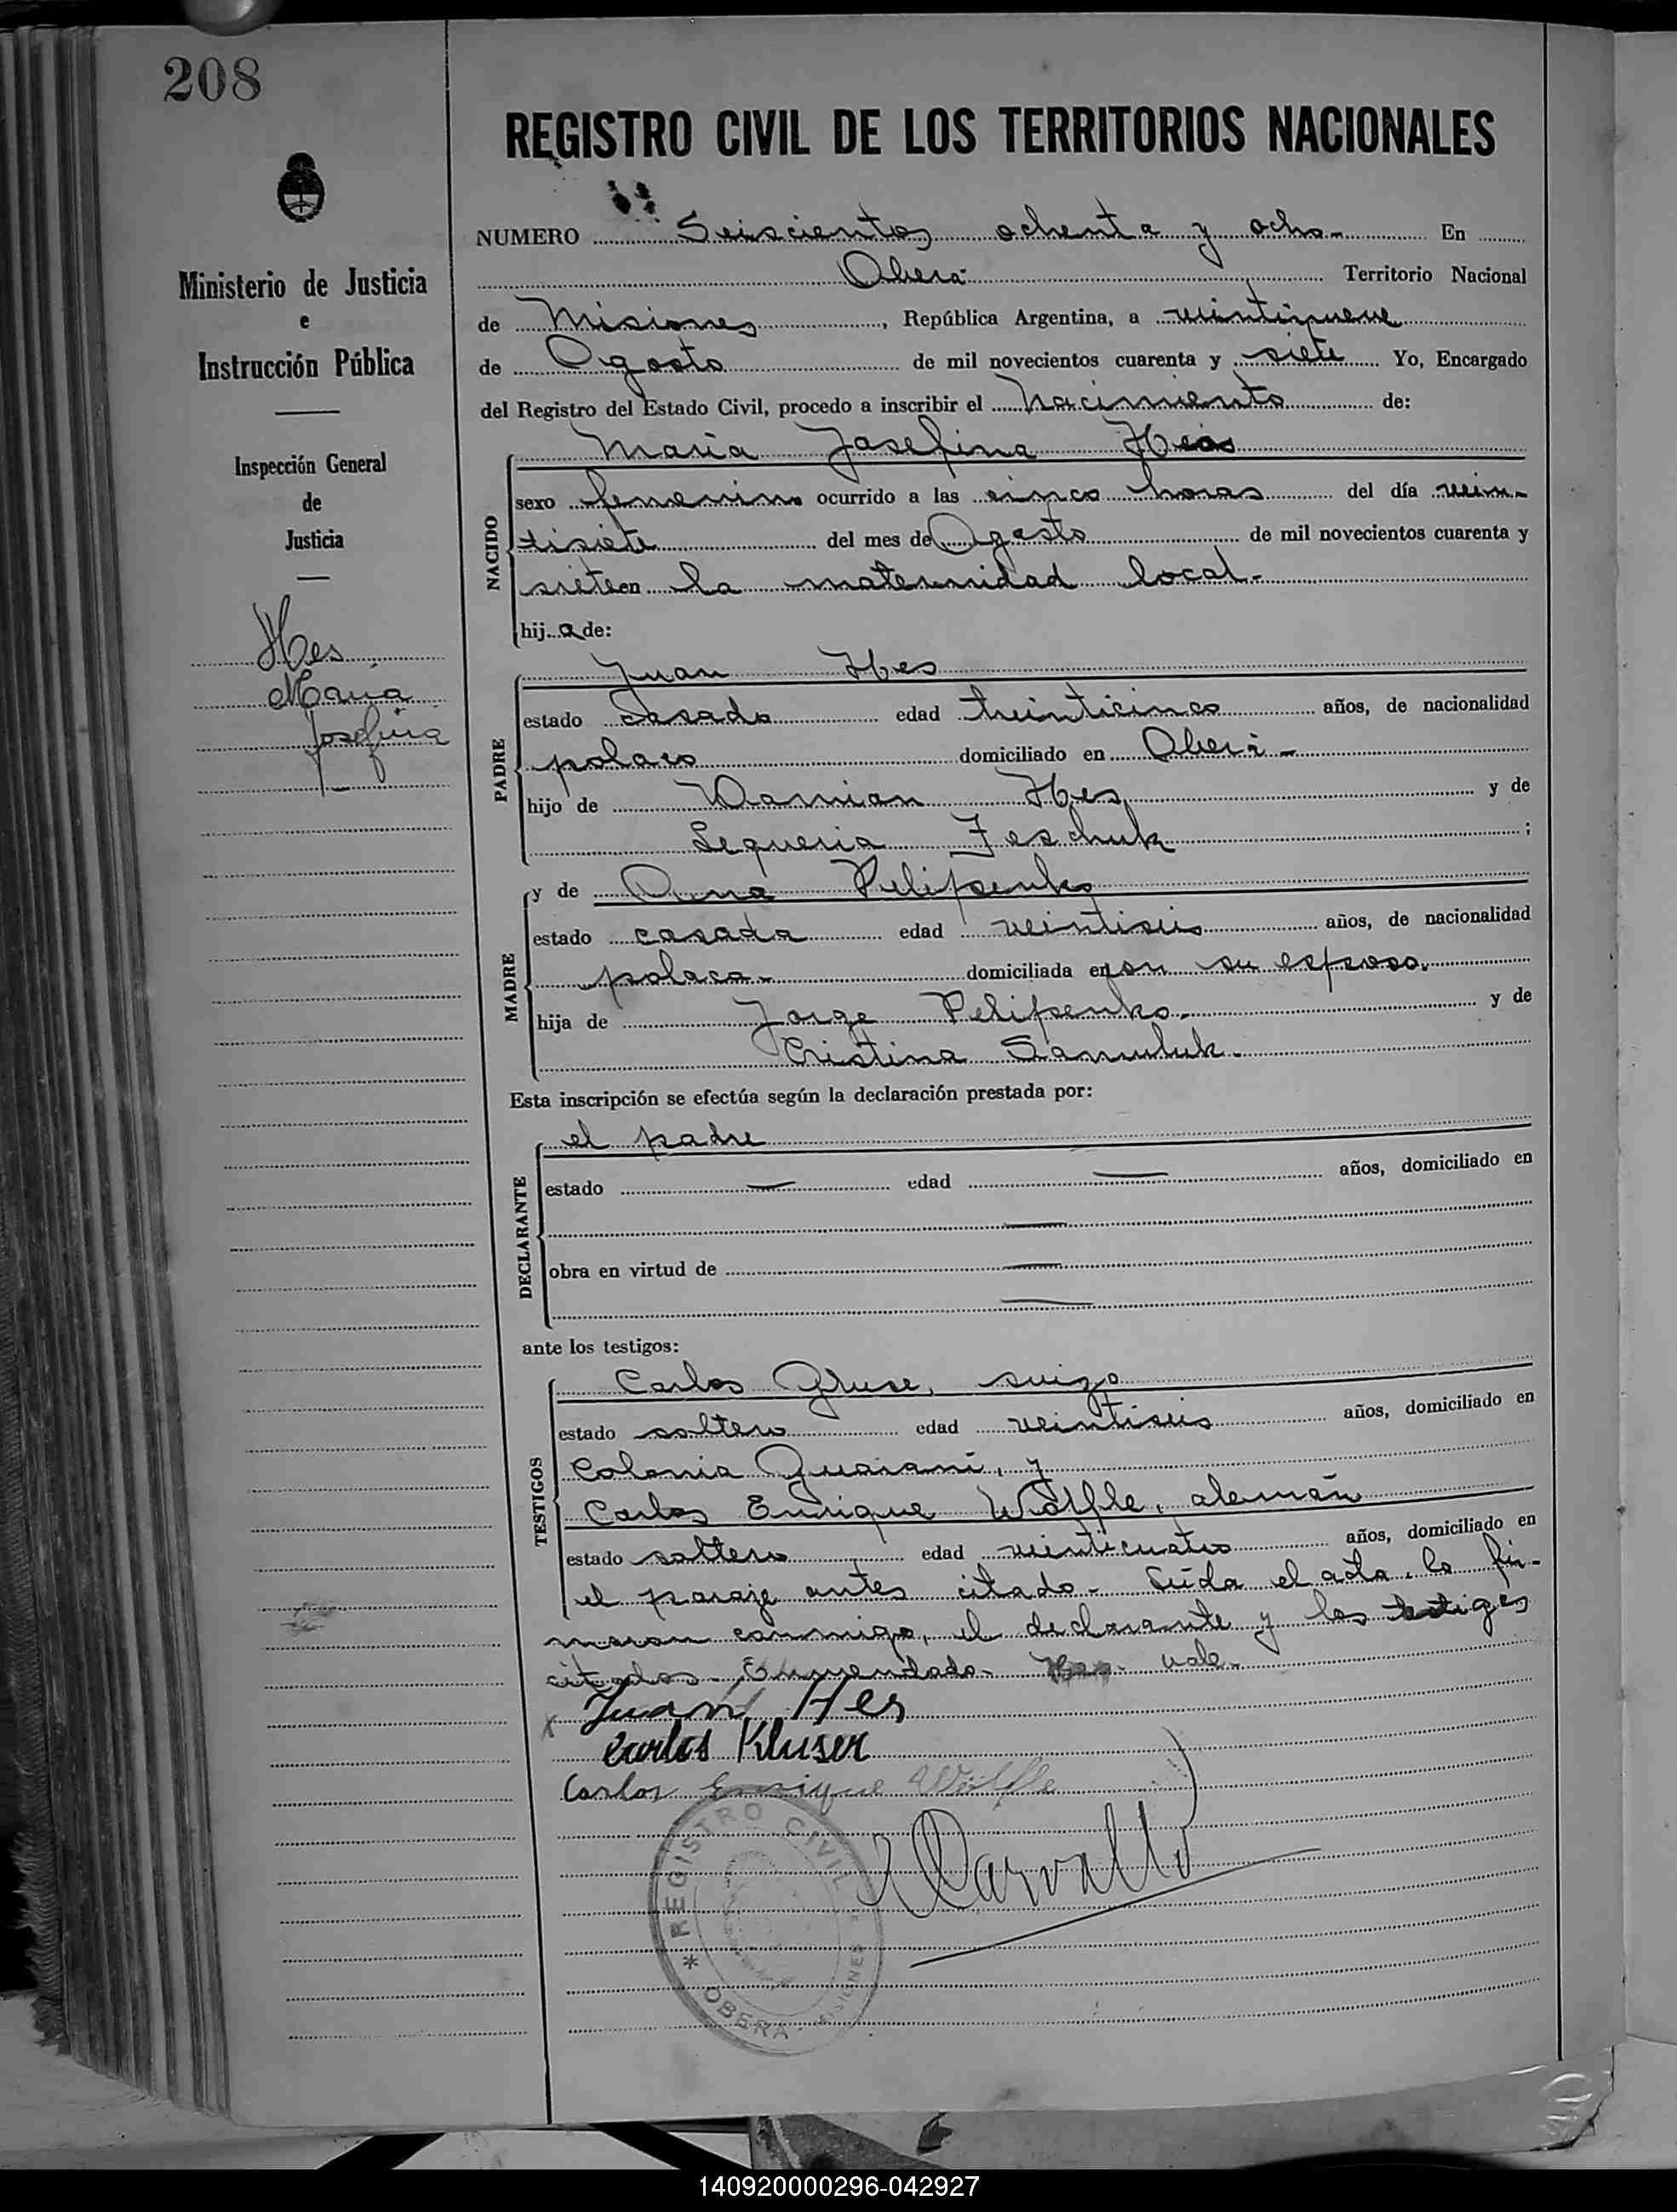 208
REGISTRO CIVIL DE LOS TERRITORIOS NACIONALES
Ministerio de Justicia
e
Instrucción Pública
Inspección General
de
Justicia
Hes
Maria
Josefina
NUMERO Seiscientos ochenta y ocho.- En
Oberá Territorio Nacional
de Misiones, República Argentina, a veintinueve
de Agosto de mil novecientos cuarenta y siete Yo, Encargado
del Registro del Estado Civil, procedo a inscribir el nacimiento de:
NACIDO
Maria Josefina Hes
sexo femenino ocurrido a las cinco horas del día vein-
tisiete del mes de Agosto de mil novecientos cuarenta y
siete en la maternidad local.-
hij a de:
PADRE
Juan Hes
estado casado edad treinticinco años, de nacionalidad
polaco domiciliado en Oberá -
hijo de Damian Hes y de
Lequeria Feschuk ;
MADRE
y de Ana Pelipenko
estado casada edad veintiseis años, de nacionalidad
polaca- domiciliada en su esposo.
hija de Jorge Pelipenko. y de
Cristina Samuluk.
Esta inscripción se efectúa según la declaración prestada por:
DECLARANTE
el padre
estado — edad — años, domiciliado en
—
obra en virtud de —
—
ante los testigos:
TESTIGOS
Carlos Gluse, suizo
estado soltero edad veintiseis años, domiciliado en
Colonia Guarani, y
Carlos Enrique Wölfle, alemán
estado soltero edad veinticuatro años, domiciliado en
el paraje antes citado.- Leida el acta, la fir-
maron conmigo, el declarante y los testigos
citados.- Enmendado- Hes- vale.-
x Juan Hes
Carlos Kluser
Carlos Enrique Wölfle
Carvallo
* REGISTRO CIVIL *
OBERA - MISIONES
140920000296-042927